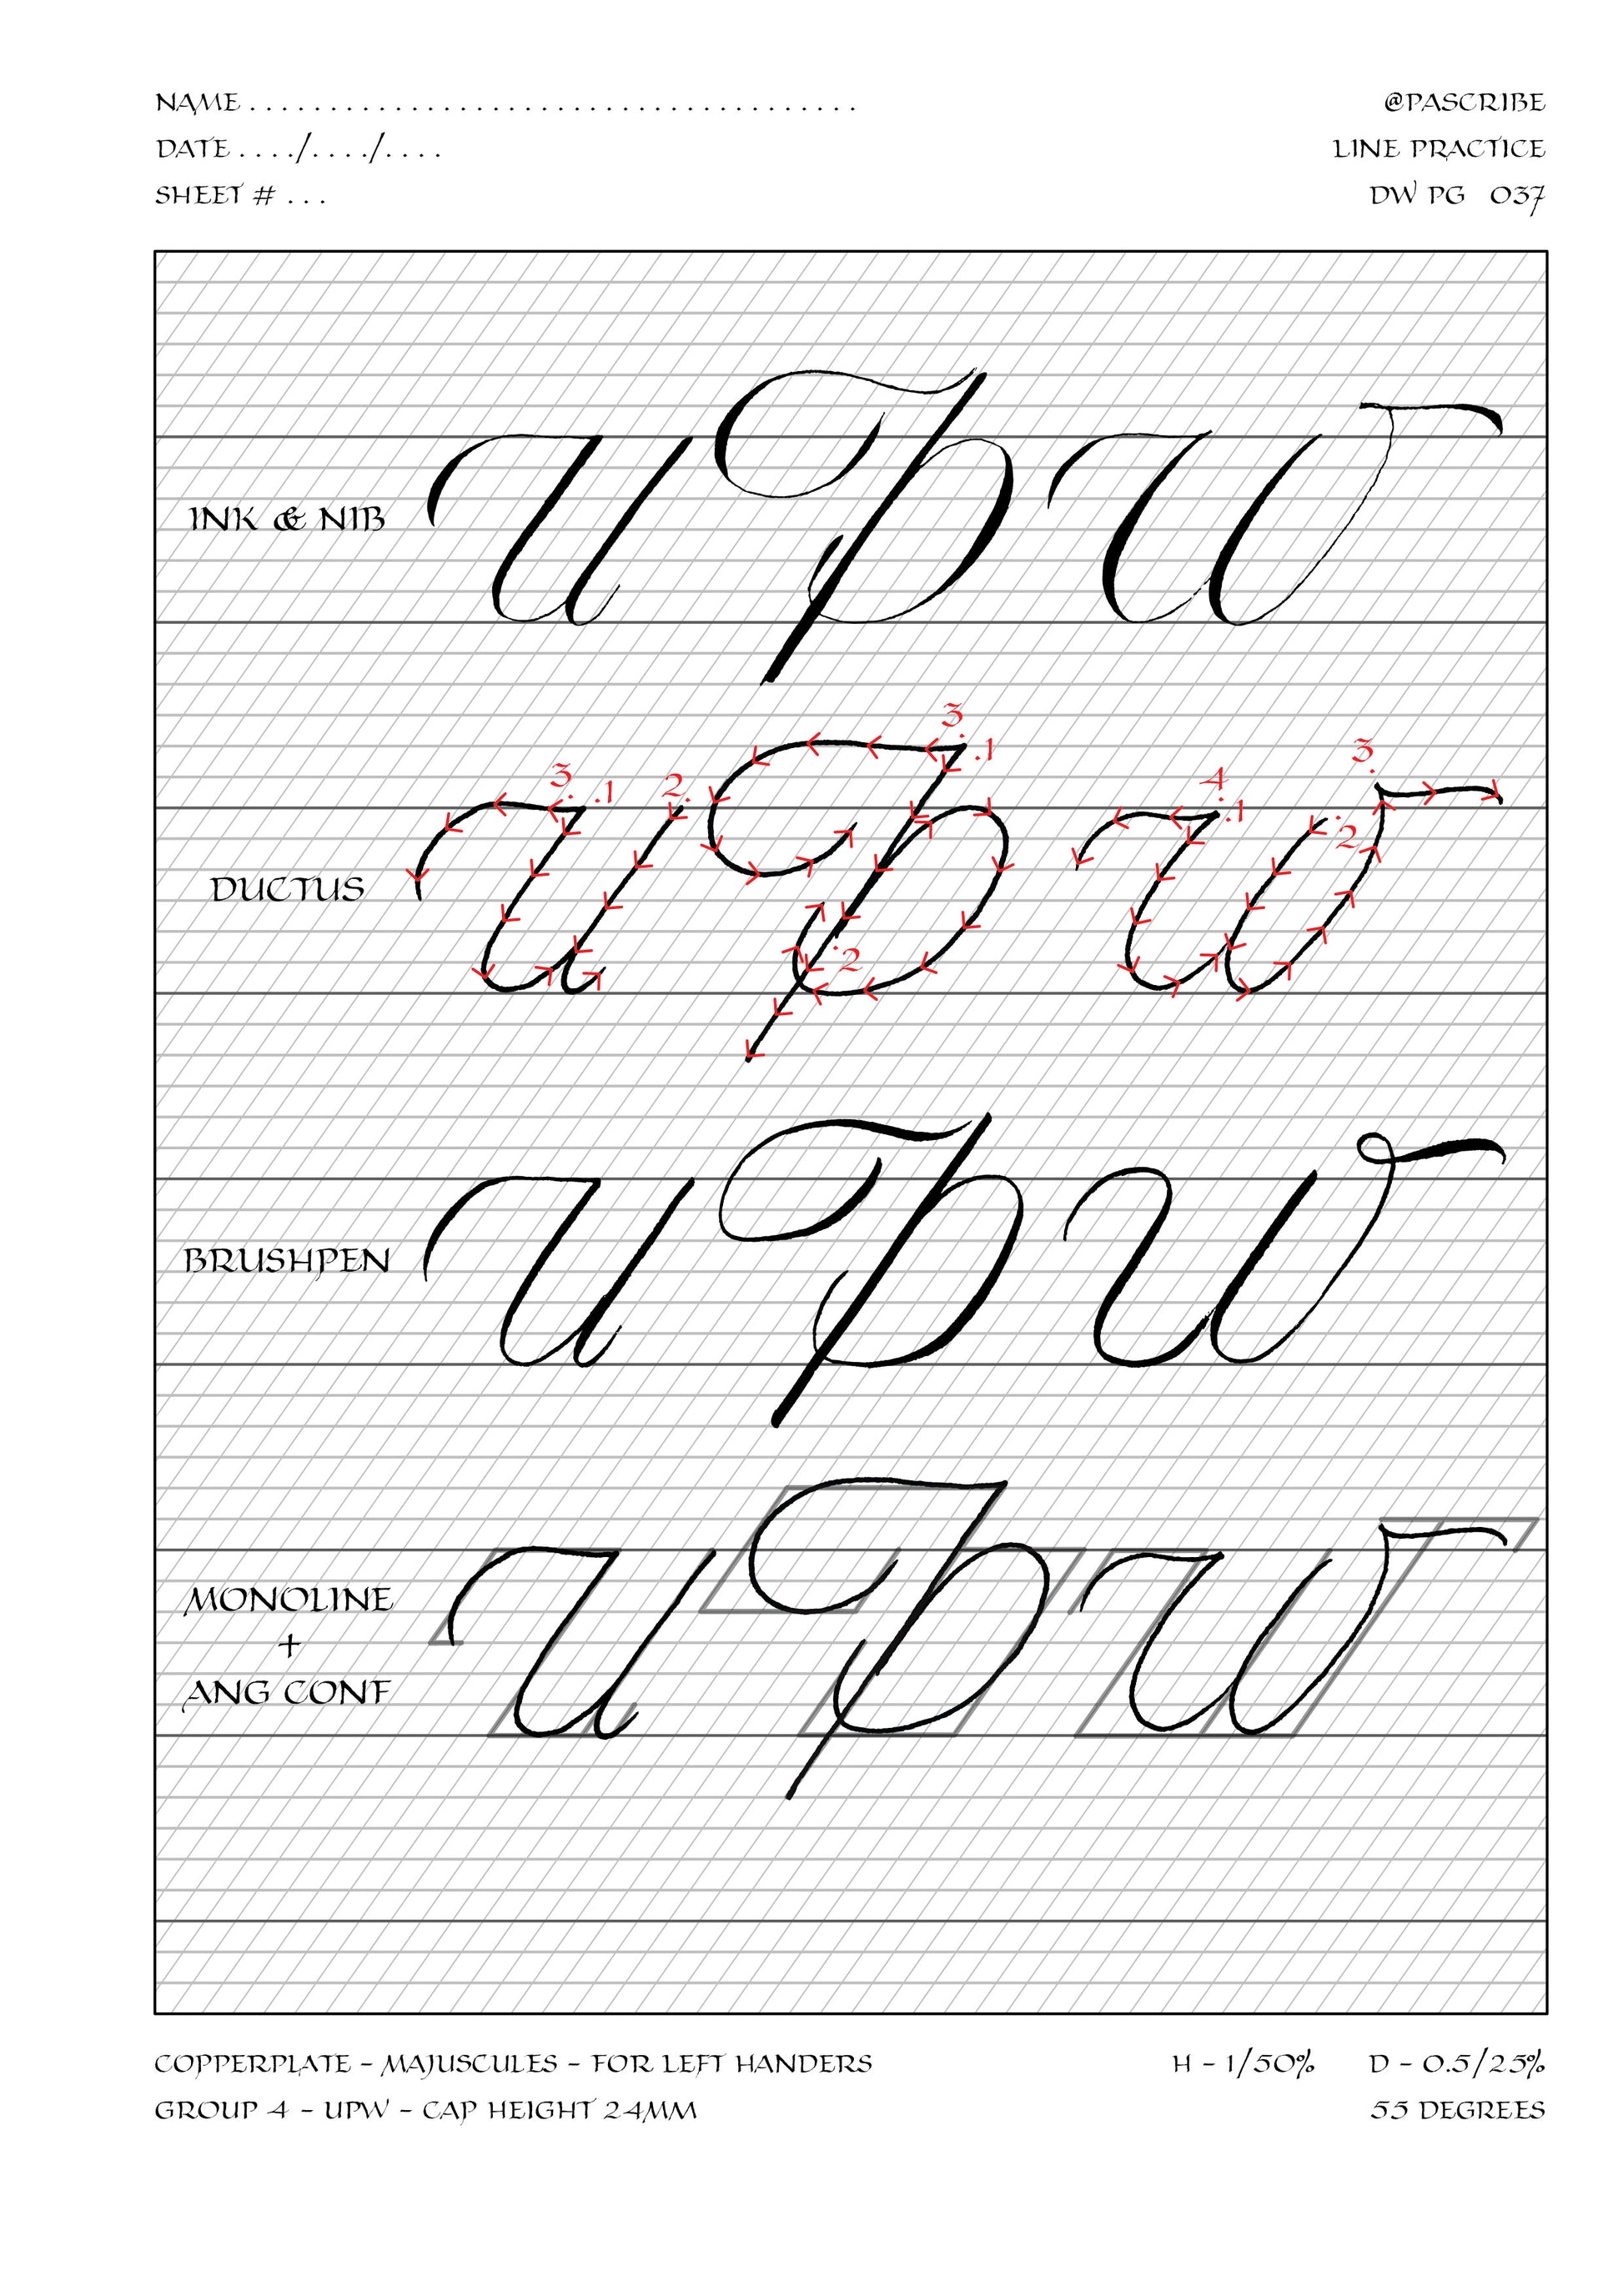 NAME ......................................
@PASCRIBE
DATE ..../..../....
LINE PRACTICE
SHEET # ...
DW PG 037
INK & NIB U P W
3. .1 2. 3. .1 4. .1 .2 3.
DUCTUS U P W
.2
BRUSHPEN U P W
MONOLINE
+
ANG CONF
U P W
COPPERPLATE - MAJUSCULES - FOR LEFT HANDERS
H - 1/50% D - 0.5/25%
GROUP 4 - UPW - CAP HEIGHT 24MM
55 DEGREES